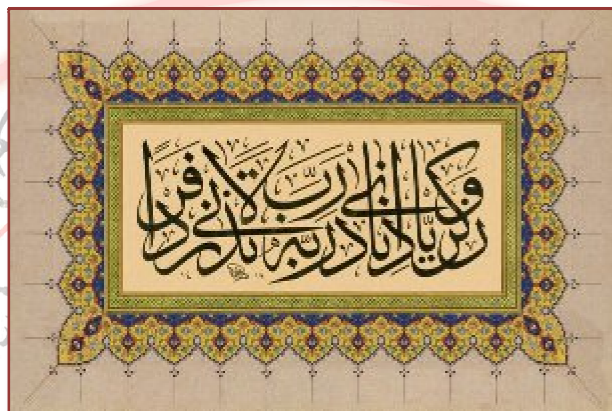 وَزَكَرِيَّا إِذْ نَادَىٰ رَبَّهُ رَبِّ لَا تَذَرْنِي فَرْدًا